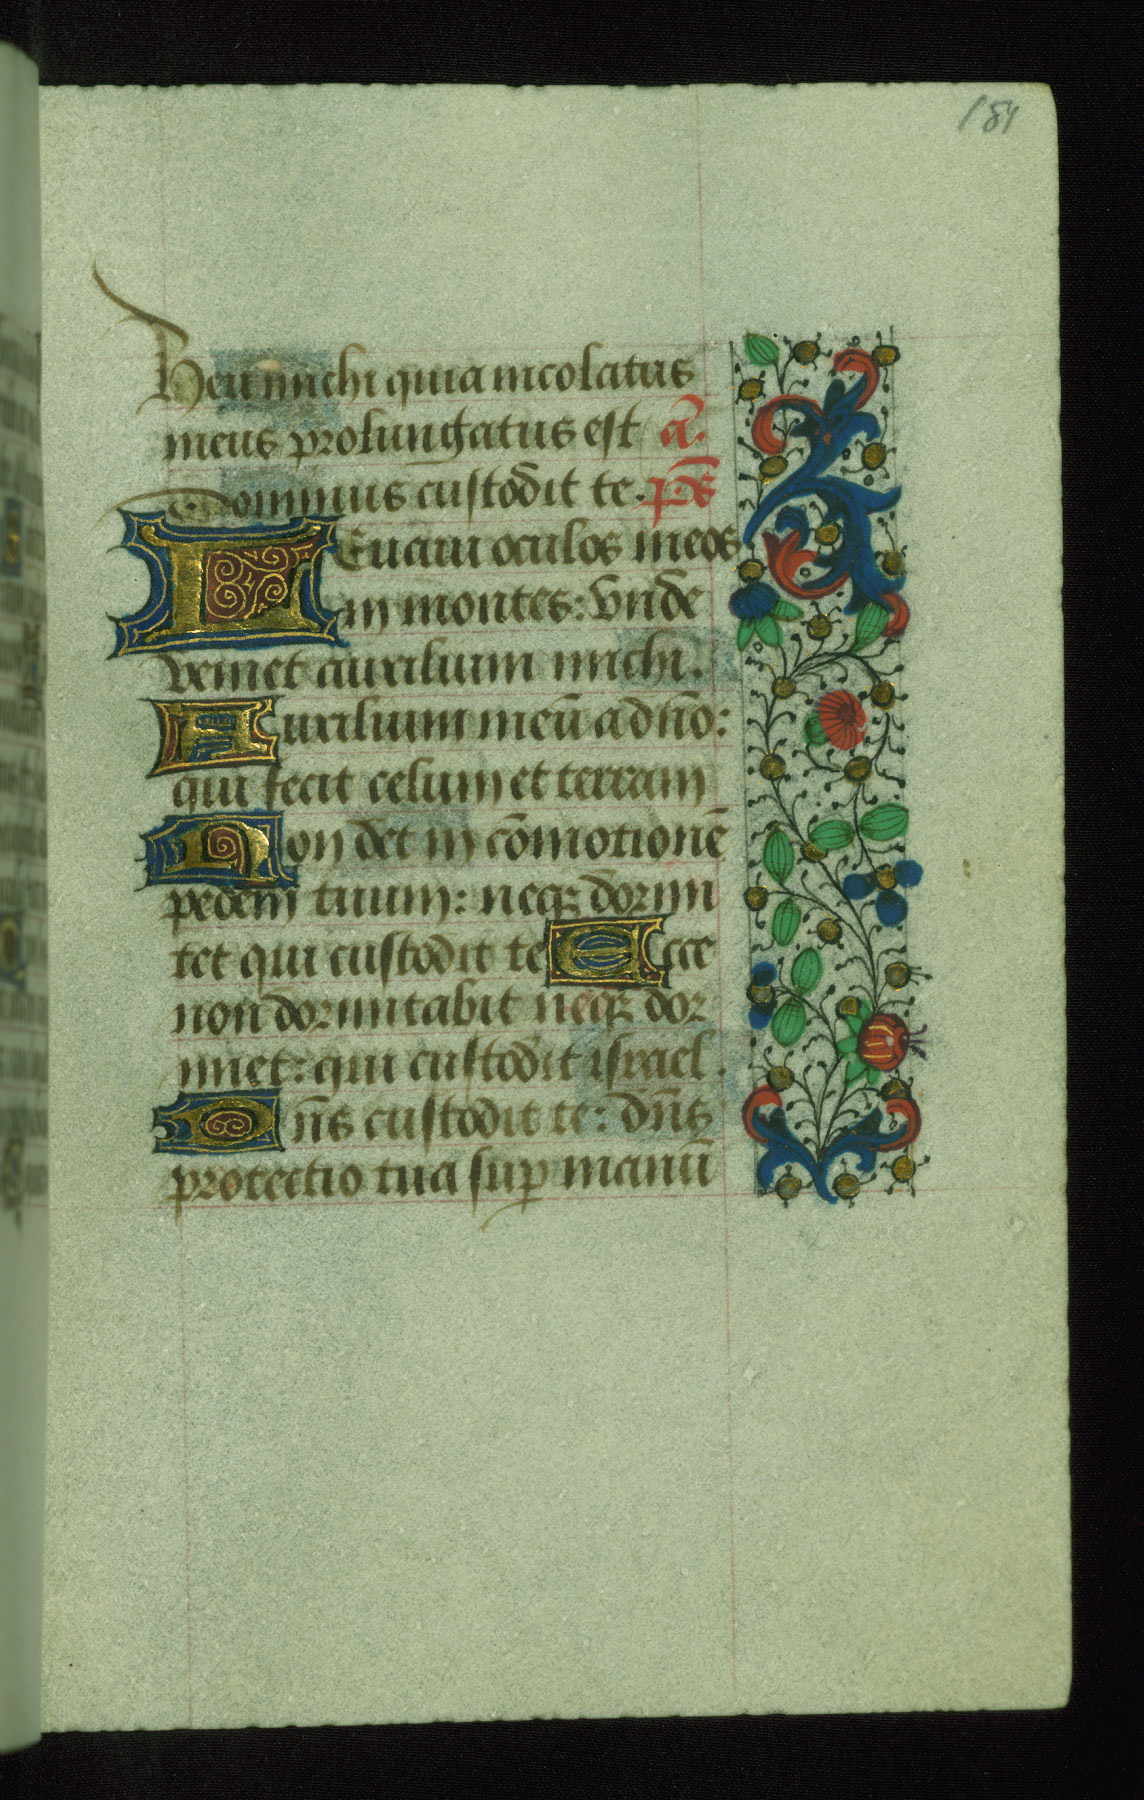 184
Heu michi quia incolatus
meus prolungatus est a.
Dominus custodit te. ps
Leuaui oculos meos
in montes: vnde
veniet auxilium michi.
Auxilium meū a dn̄o:
qui fecit celum et terram
Non det in cōmotionē
pedem tuum: neqꝫ dormi
tet qui custodit te Ecce
non dormitabit neqꝫ dor
miet: qui custodit israel.
Dn̄s custodit te: dn̄s
protectio tua sup manū